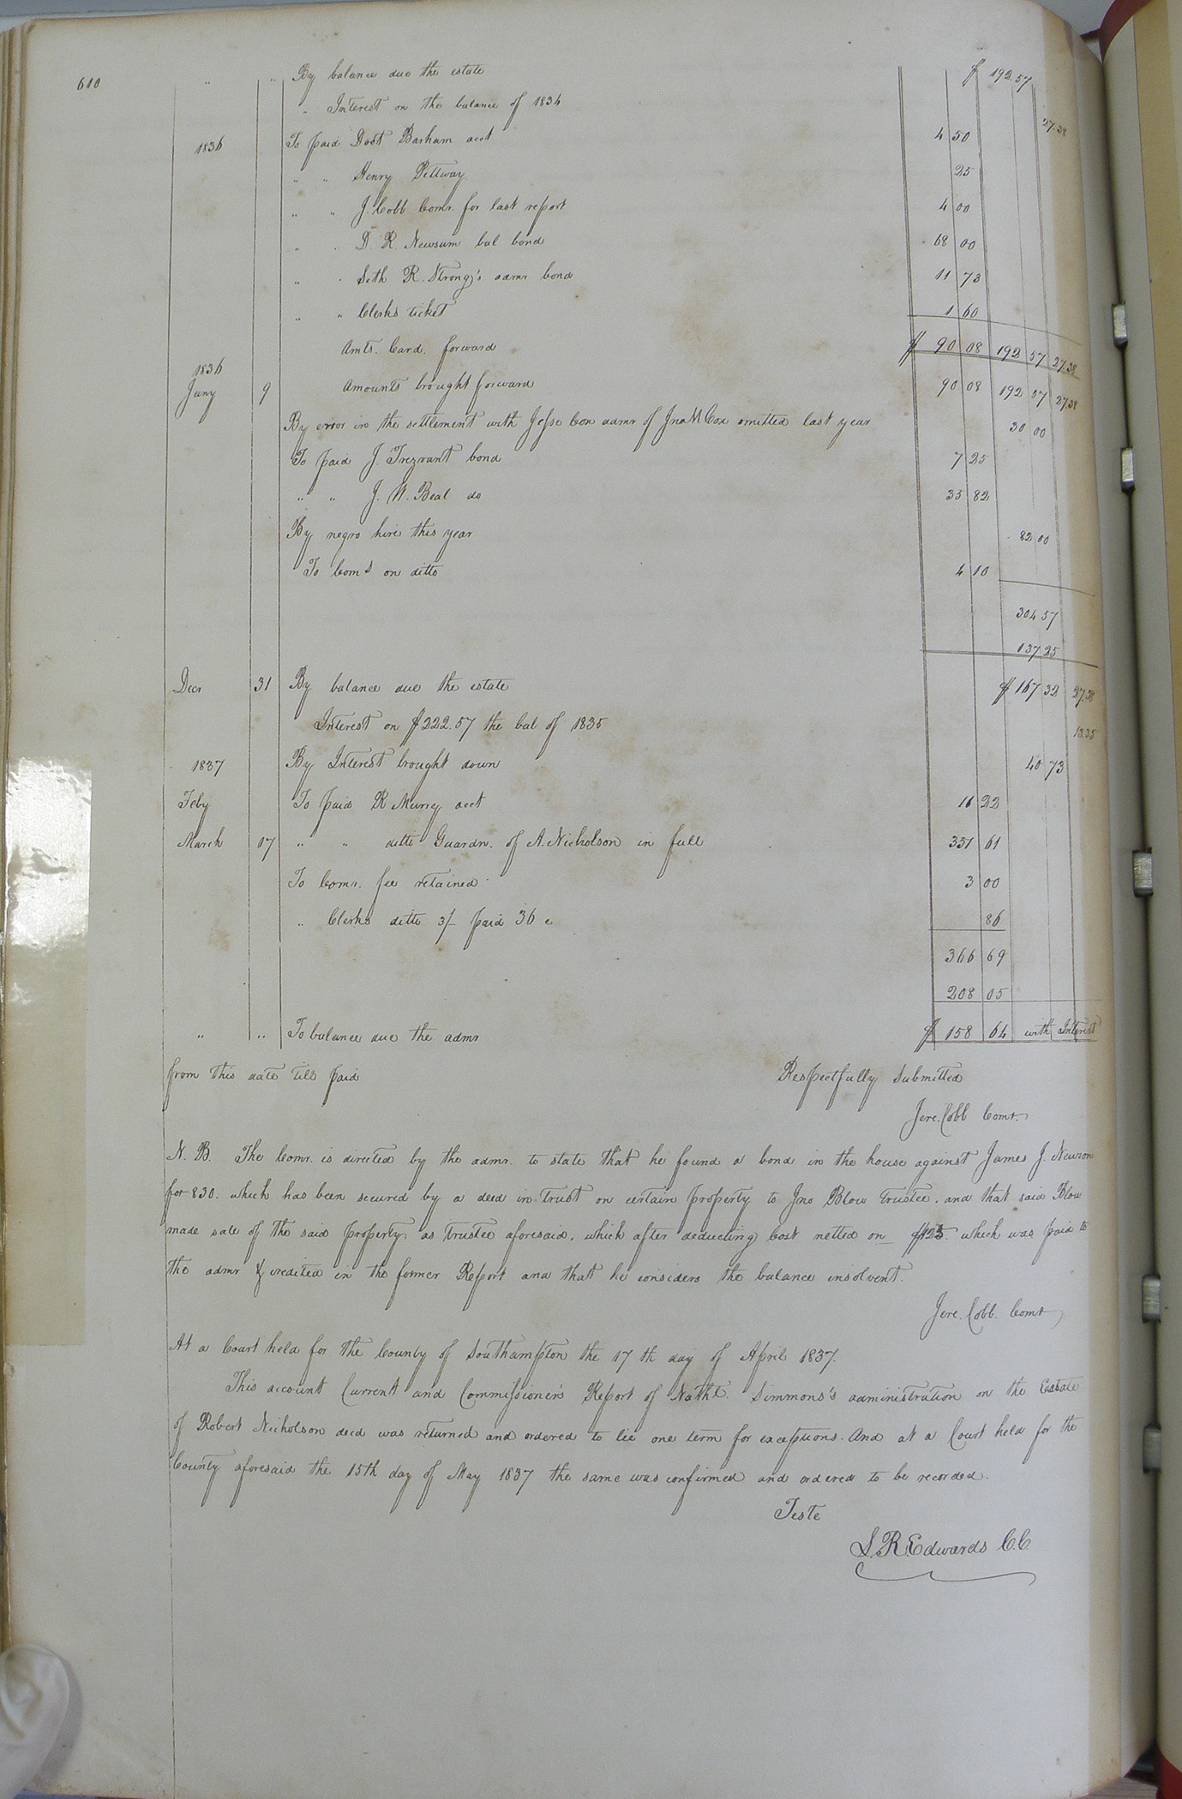 610 " " By balance due the estate $ 192 57
" Interest on the balance of 1834 27.38
1836 To paid Doct Barham acct 4 50
" " Henry Pettway 25
" " J. Cobb Comr. for last report 4 00
" " D. R. Newsum bal bond 68 00
" " Seth R. Strong's admr bond 11 73
" " Clerks ticket 1 60
Amts. Card. forward $ 90 08 192 57 27.38
1836
Jany 9 Amounts brought forward 90 08 192 57 27.38
By error in the settlement with Jesse Cox admr of Jno M Cox omitted last year 30 00
To paid J Trezvant bond 7 25
" " J. W. Beal do 35 82
By negro hire this year 82 00
To Coms on ditto 4 10
304 57
137 25
Decr 31 By balance due the estate $ 167 32 27.38
Interest on $222.57 the bal of 1835 13.35
1837 By Interest brought down 40 73
Feby To paid R Murry acct 11 22
March 17 " " ditto Guardn. of A. Nicholson in full 351 61
To Comr. fee retained 3 00
" Clerks ditto 3/- paid 36 c 86
366 69
208 05
" " To balance due the admr $ 158 64 with Interest
from this date till paid Respectfully Submitted
Jere. Cobb Comr.
N. B. The Comr. is directed by the admr. to state that he found a bond in the house against James J. Newsom
for 830. which has been secured by a deed in trust on certain property to Jno Blow trustee, and that said Blow
made sale of the said property as trustee aforesaid, which after deducting cost netted on $123. which was paid to
the admr & credited in the former Report and that he considers the balance insolvent.
Jere. Cobb. Comr
At a Court held for the County of Southampton the 17th day of April 1837.
This account Current and Commissioner's Report of Nathl. Simmons's administration on the Estate
of Robert Nicholson decd was returned and ordered to lie one term for exceptions. And at a Court held for the
County aforesaid the 15th day of May 1837 the same was confirmed and ordered to be recorded.
Teste
S. R. Edwards C.C.